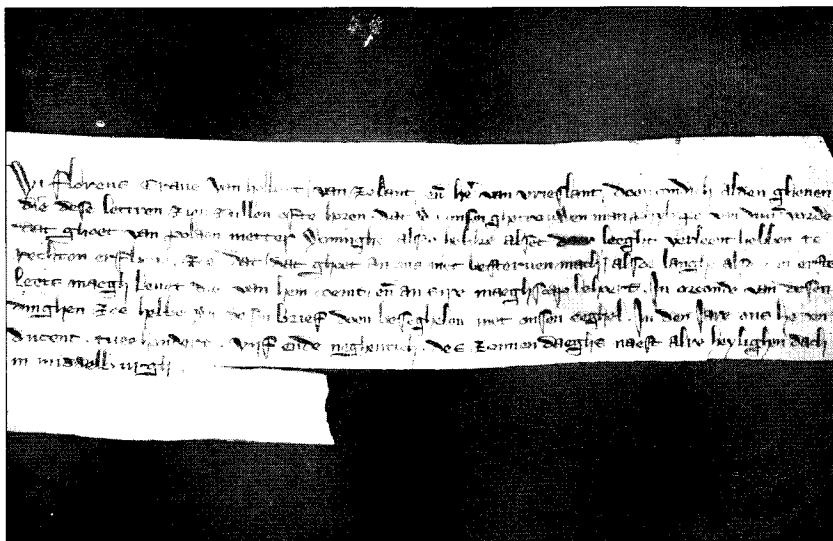 Wi florens Graue van hollant, van zelant, en̄ he͛ van vrieslant, doen condich alden ghenen
die dese lettren zien zullen ofte horen, dat wi onsen ghetrouwen man van
dat ghoet van polaen metter woninghe alse hebbe alset daer leeght verleent hebben te
rechten erfleene. Zoe dat dat ghoet an ons niet bestoruen mach alse langhe alse er
leeft maegh van hem coemt en̄ an sire maeghscap behoert. In orconde van desen
dinghen zoe hebbe wi desen brief doen beseghelen met onsen seghel. In den jare ons heren
ducent. twehondert. vijf ende neghentich. des zonnendaeghs naest alre heylighen dach
in middelburgh